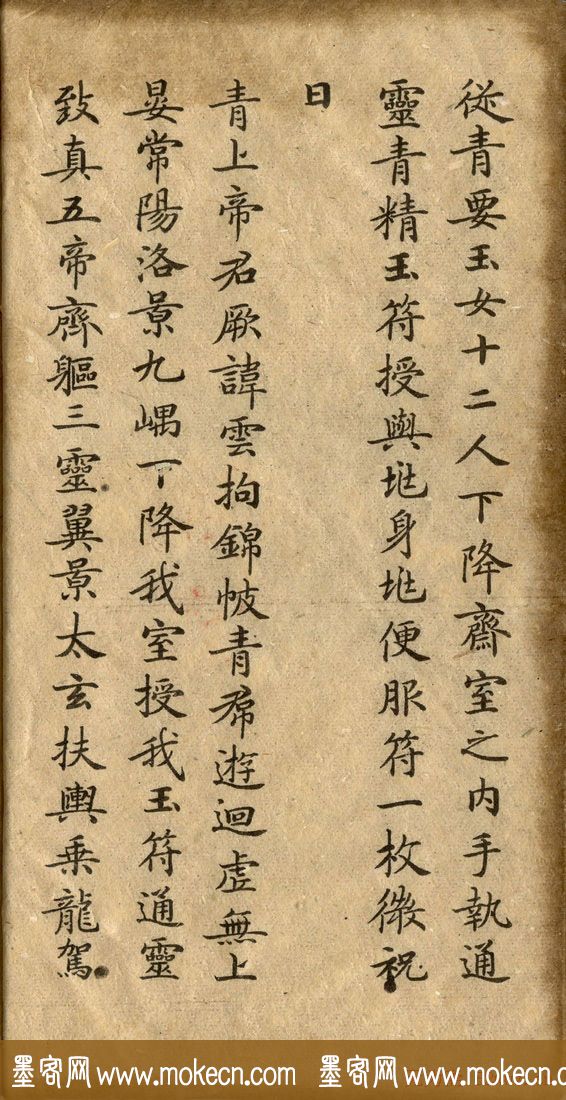 從青要玉女十二人下降齋室之内手執通
靈青精玉符授與兆身兆便服符一枚微祝
曰
青上帝君厥諱雲拘錦帔青帬遊迴虛無上
晏常陽洛景九嵎下降我室授我玉符通靈
致真五帝齊軀三靈翼景太玄扶輿乘龍駕
墨客网 www.mokecn.com 墨客网 www.mokecn.com